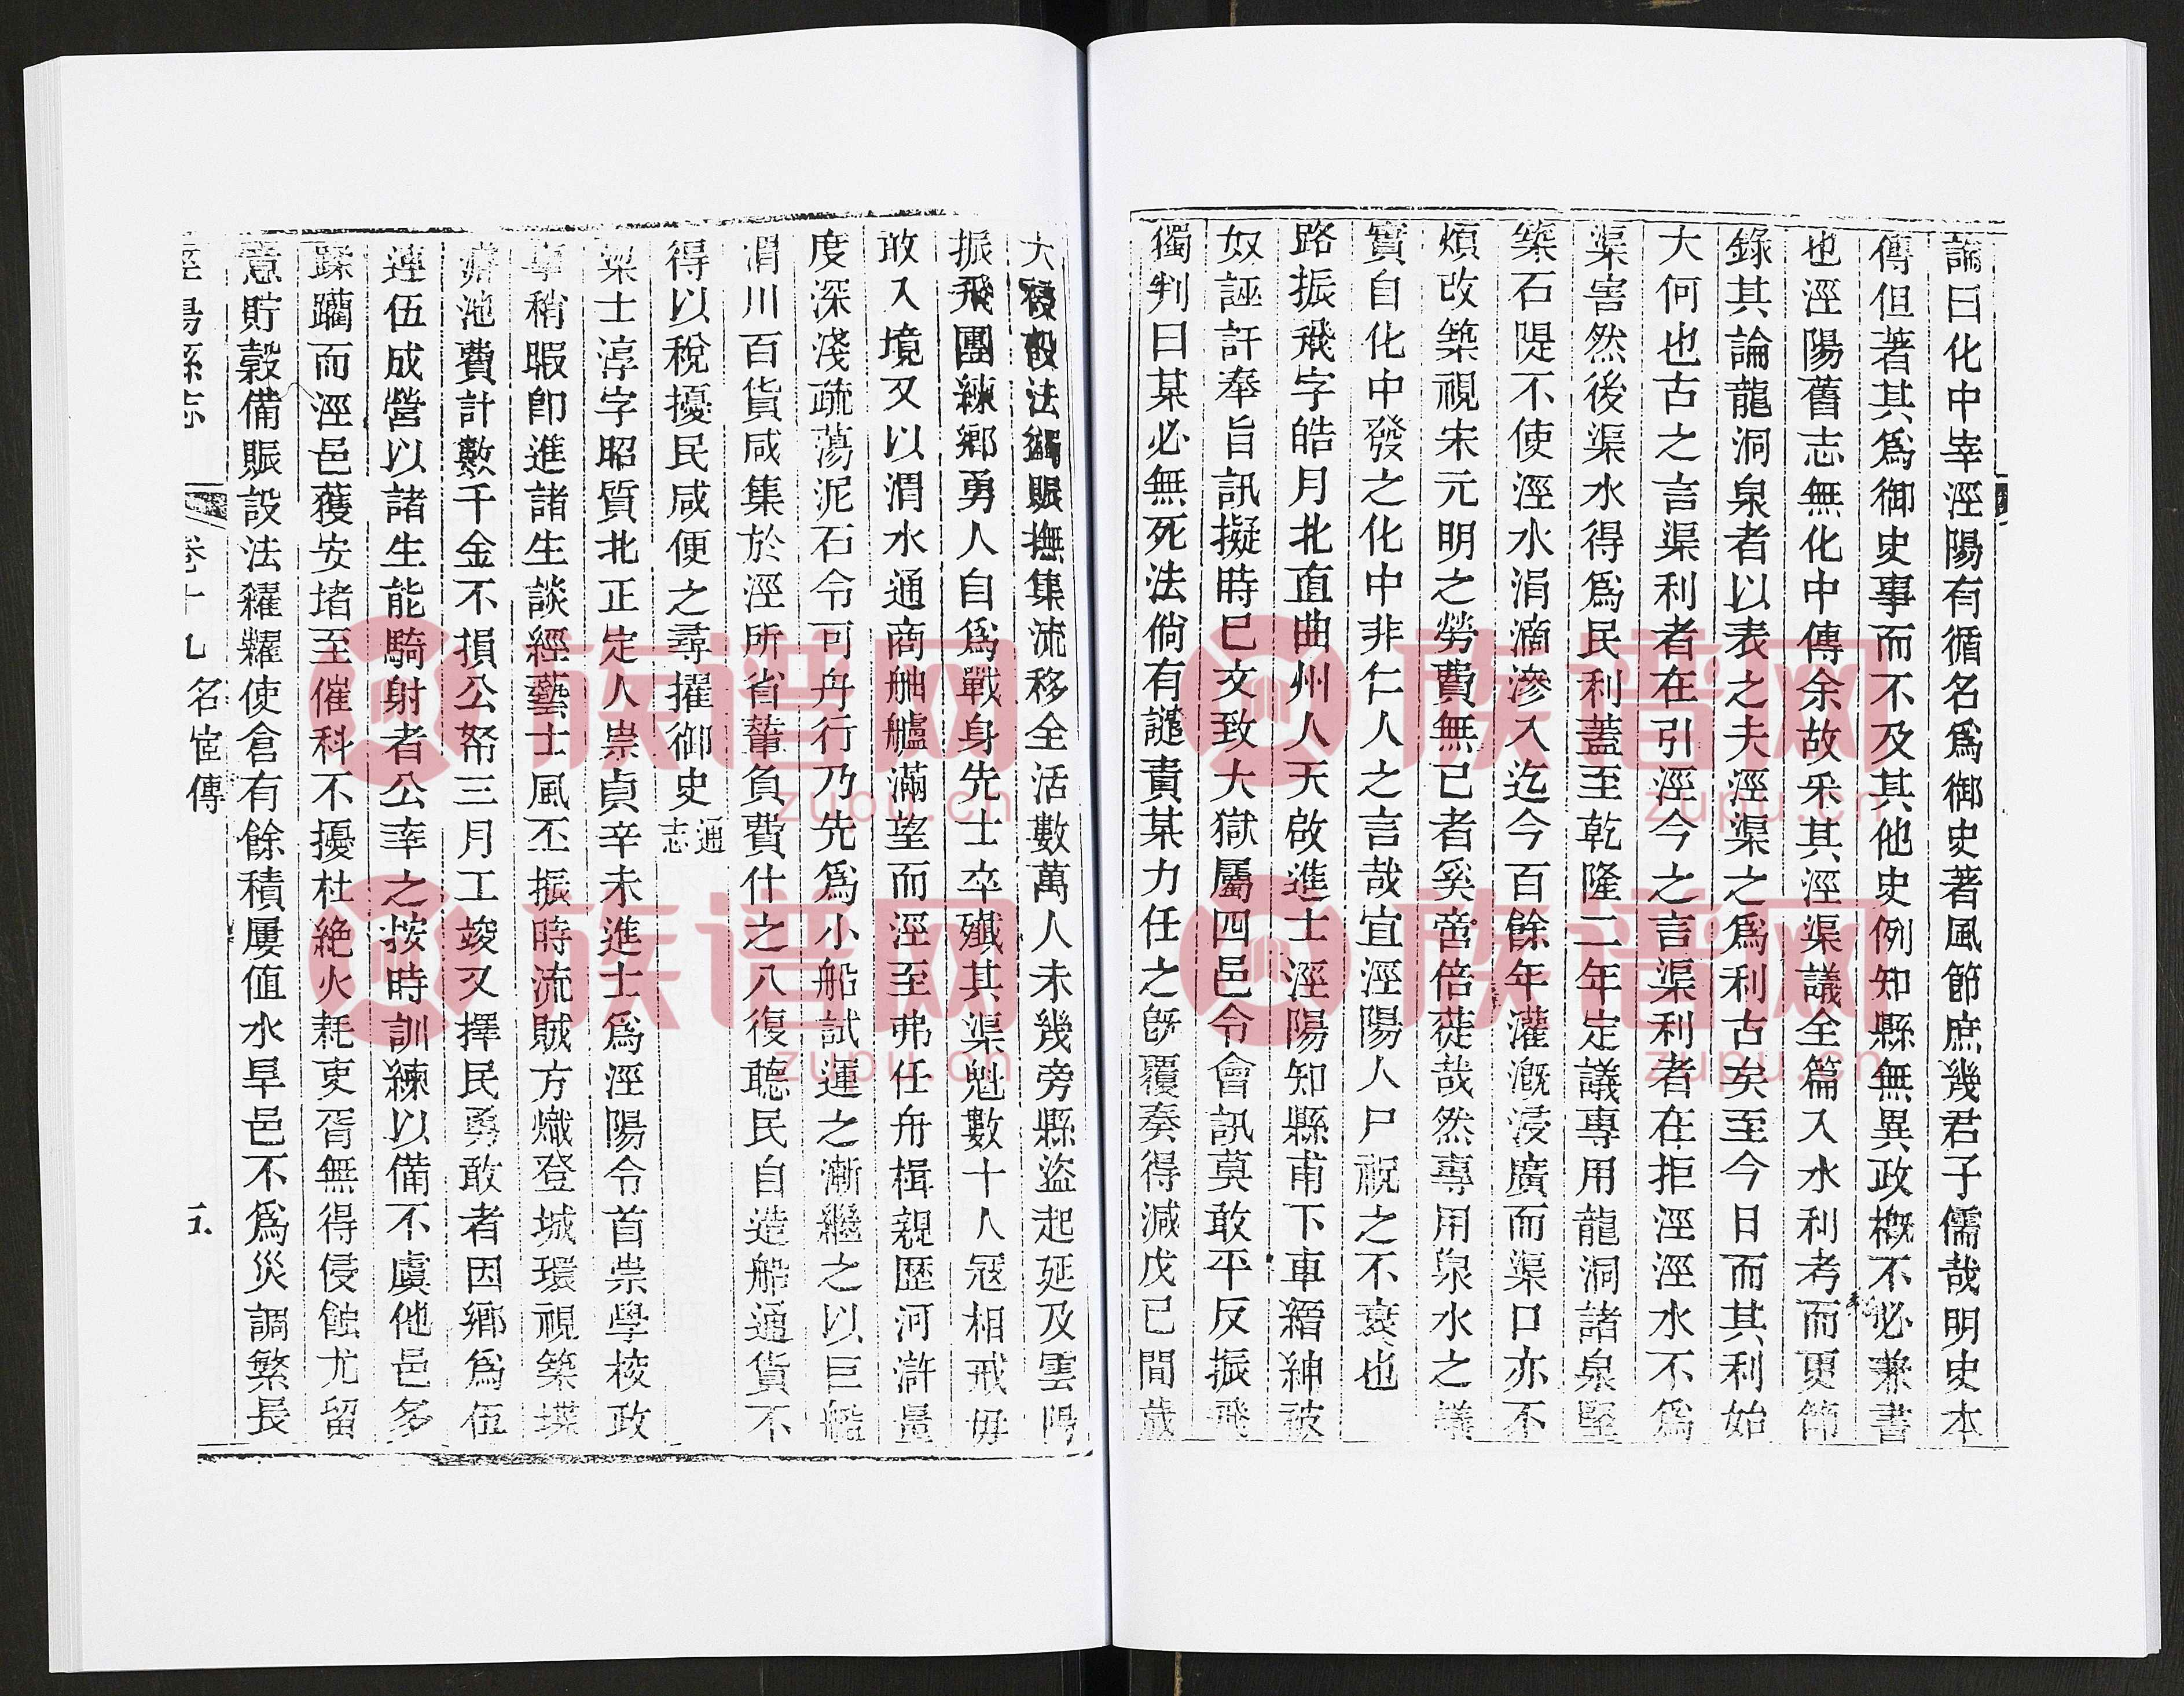 論曰化中宰涇陽有循名爲御史著風節庶幾君子儒哉明史本
傳但著其爲御史事而不及其他史例知縣無異政概不必兼書
也涇陽舊志無化中傳余故采其涇渠議全篇入水利考而更節
錄其論龍洞泉者以表之夫涇渠之爲利古矣至今日而其利始
大何也古之言渠利者在引涇今之言渠利者在拒涇涇水不爲
渠害然後渠水得爲民利蓋至乾隆二年定議專用龍洞諸泉堅
築石隄不使涇水涓滴滲入迄今百餘年灌漑浸廣而渠口亦不
煩改築視宋元明之勞費無已者奚啻倍蓰哉然專用泉水之議
實自化中發之化中非仁人之言哉宜涇陽人尸祝之不衰也
路振飛字皓月北直曲州人天啟進士涇陽知縣甫下車縉紳被
奴誣訐奉旨訊擬時已文致大獄屬四邑令會訊莫敢平反振飛
獨判曰某必無死法倘有譴責某力任之旣覆奏得減戍已間歲
大祲設法蠲賑撫集流移全活數萬人未幾旁縣盜起延及雲陽
振飛團練鄉勇人自爲戰身先士卒殲其渠魁數十人冦相戒毋
敢入境又以渭水通商舳艫滿望而涇至弗任舟楫親歷河滸量
度深淺疏蕩泥石令可舟行乃先爲小船試運之漸繼之以巨艦
渭川百貨咸集於涇所省輦負費什之八復聽民自造船通貨不
得以稅擾民咸便之尋擢御史通志
梁士淳字昭質北正定人崇貞辛未進士爲涇陽令首崇學校政
事稍暇卽進諸生談經藝士風丕振時流賊方熾登城環視築堞
濬池費計數千金不損公帑三月工竣又擇民勇敢者因鄉爲伍
連伍成營以諸生能騎射者公率之按時訓練以備不虞他邑多
蹂躪而涇邑獲安堵至催科不擾杜絕火耗吏胥無得侵蝕尤留
意貯穀備賑設法糴糶使倉有餘積屢值水旱邑不爲災調繁長
涇陽縣志
名宦傳
族谱网
zupu.cn
族谱网
zupu.cn
族谱网
zupu.cn
族谱网
zupu.cn